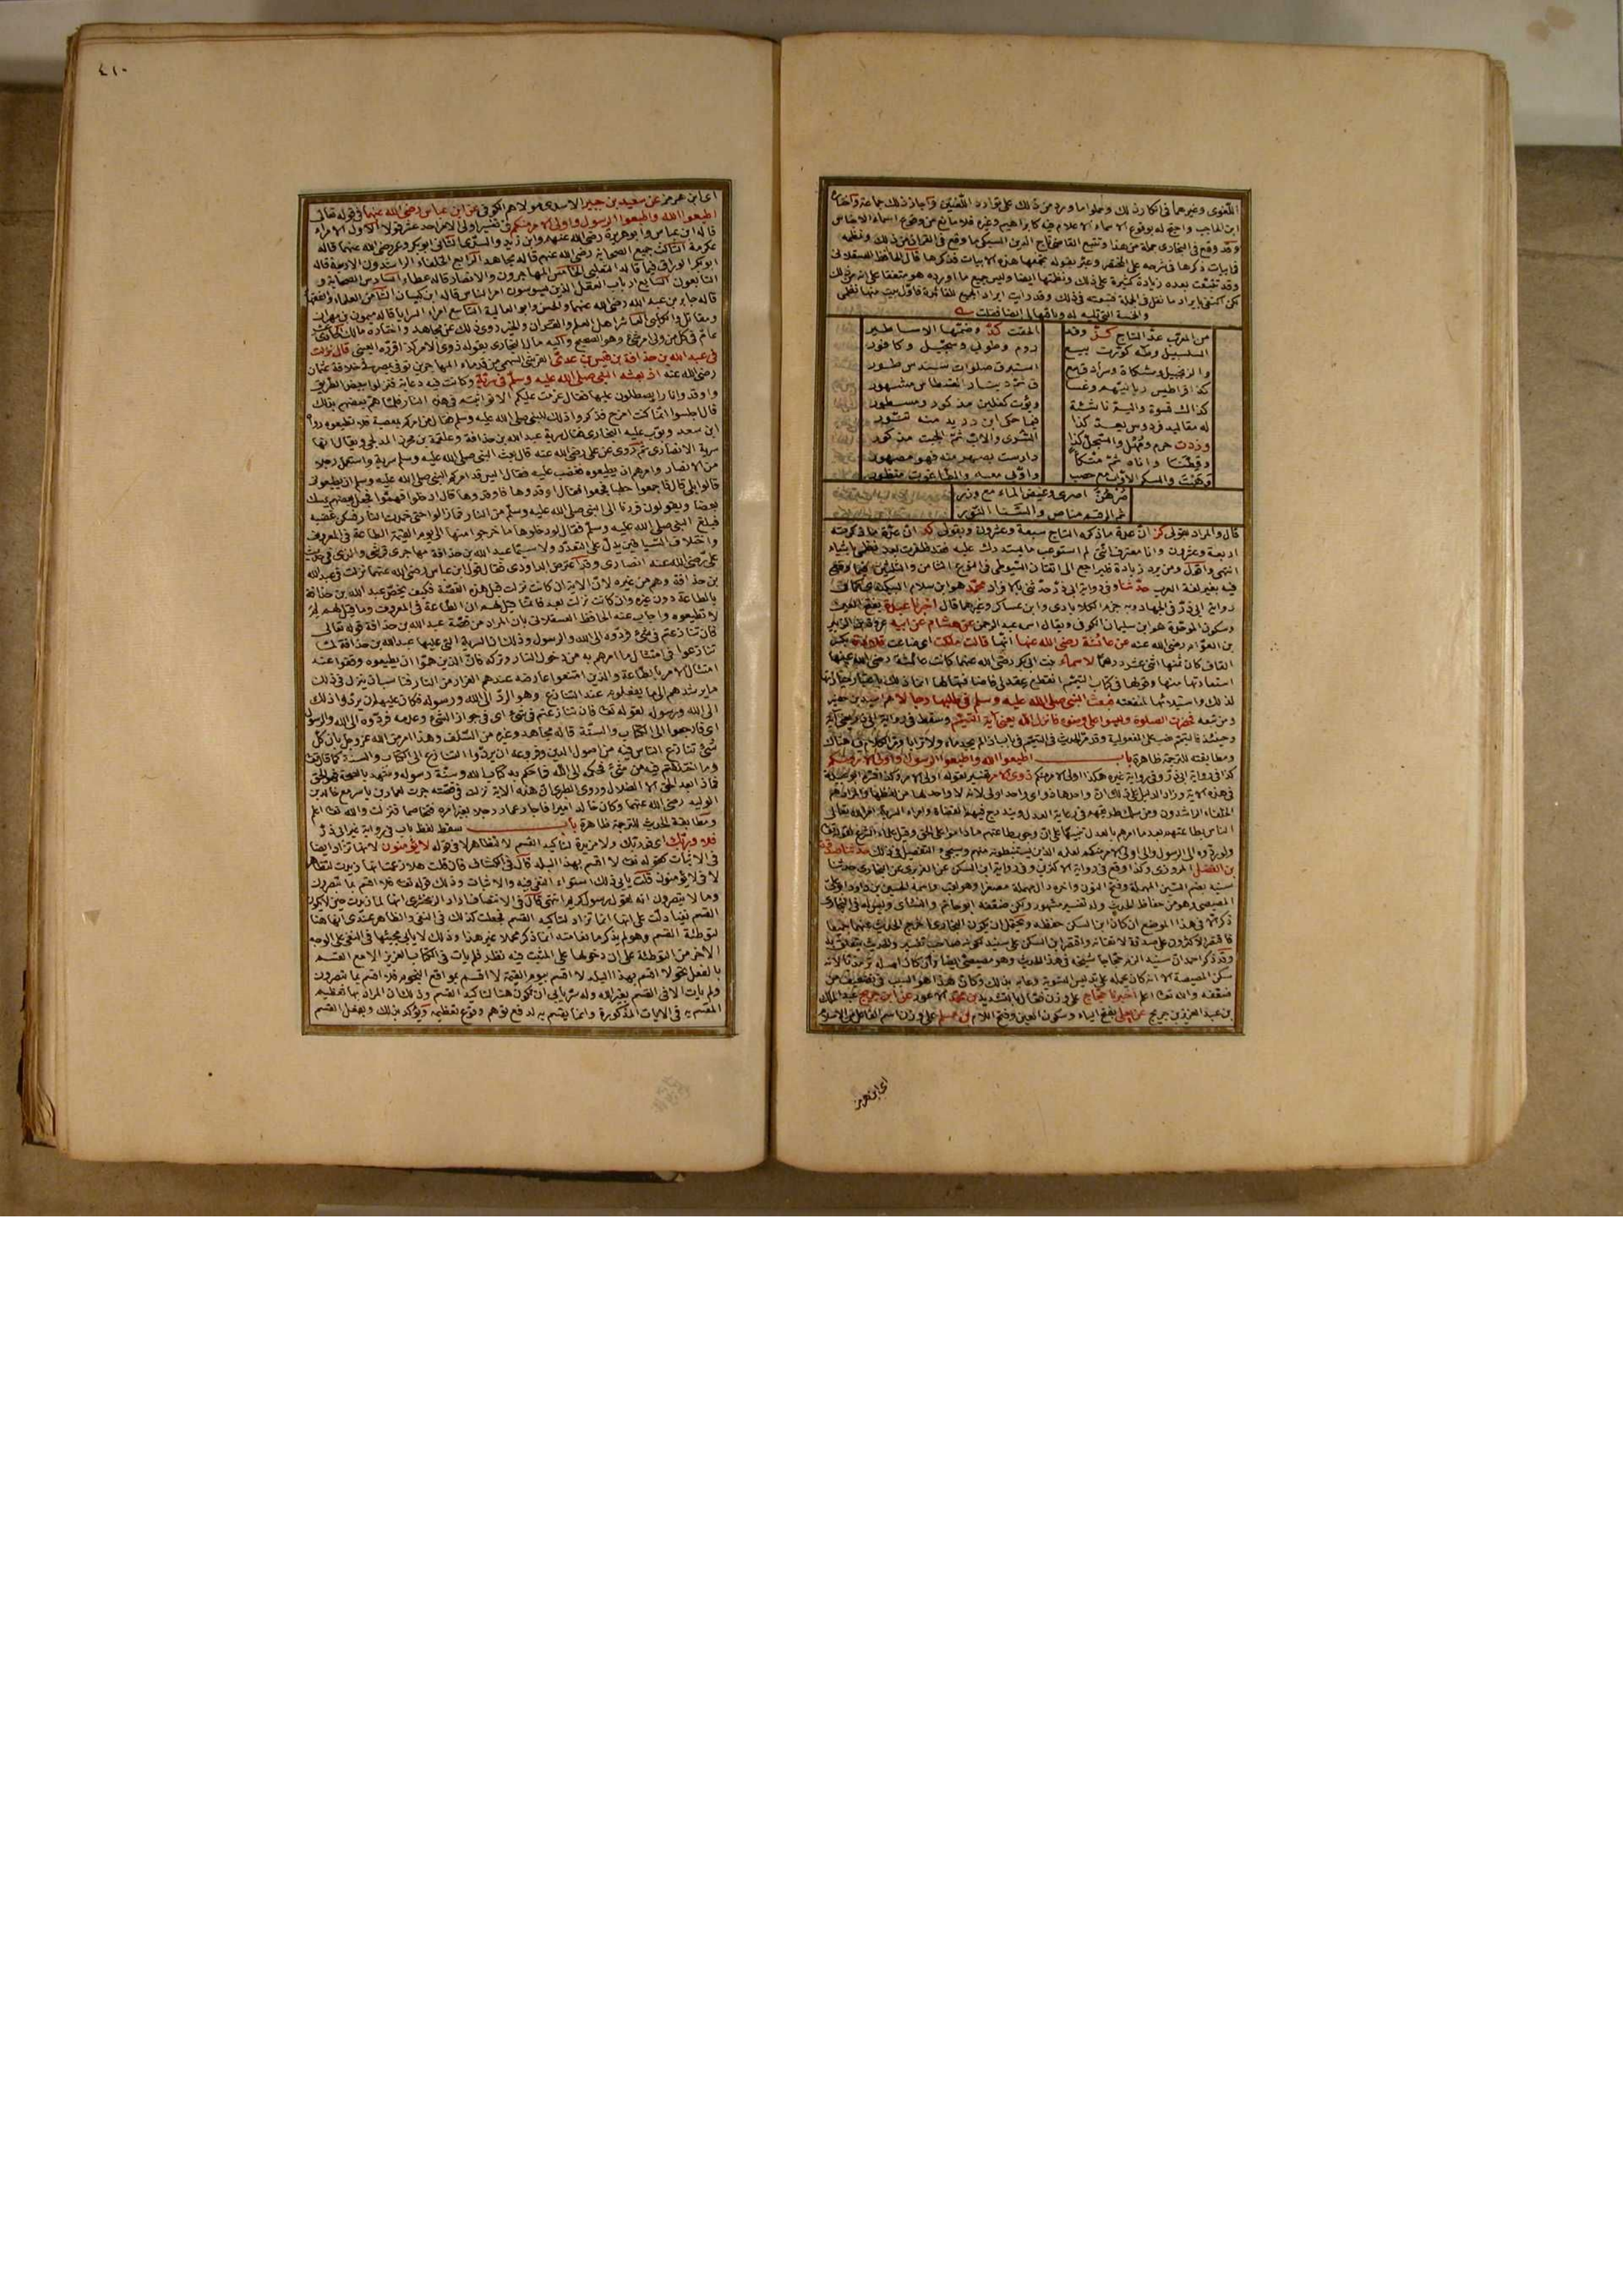 اللغوى وغيرهما فى انكار ذلك وحملوا ما ورد من ذلك على توارد اللغتين واجاز ذلك جماعة واختاره
ابن الحاجب واحتج له بوقوع الاسماء الاعلام فيه كابراهيم وغيره فلا مانع من وقوع اسماء الاجناس
وقد وقع فى البخارى جملة من هذا وتتبع القاضى تاج الدين السبكى ما وقع فى القران من ذلك ونظمه
فى ابيات ذكرها فى شرحه على المختصر وعبر بقوله تجمعها هذه الابيات فذكرها قال الحافظ العسقلانى
وقد تتبعت بعده زيادة كثيرة على ذلك ونظمتها ايضا وليس جميع ما اورده هو متفقا على انه من ذلك
لكن اكتفى بايراد ما نقل فى الجملة فتبعته فى ذلك وقد رايت ايراد الجميع للفائدة فاول بيت منها نظمى
والخمسة التى تليه له وباقيها لى ايضا فقلت
من المعرب عد التاج كز وقد
الحقت كد وضمتها الاساطير
السلسبيل وطه كورت بيع
روم وطوبى وسجيل وكافور
والزنجبيل ومشكاة وسرادق مع
استبرق صلوات سندس طور
كذا قراطيس ربانيهم وغسا
ق ثم دينار القسطاس مشهور
كذاك قسورة واليم ناشئة
ويؤت كفلين مذكور ومسطور
له مقاليد فردوس يعد كذا
فيما حكى ابن دريد منه تنور
وزدت حرم ومهل والسجل كذا
السرى والاب ثم الجبت مذكور
وقطنا واناه ثم متكأ
دارست يصهر منه فهو مصهور
وهيت والسكر الاواه مع حصب
واوبى معه والطاغوت منظور
صرهن اصرى وغيض الماء مع وزر
ثم الرقيم مناص والسنا النور
قال والمراد بقولى كز ان عدة ما ذكره التاج سبعة وعشرون وبقولى كد ان عدة ما ذكرته
اربعة وعشرون وانا معترف اننى لم استوعب ما يستدرك عليه فقد ظفرت بعد نظمى باشياء
انتهى واقول ومن يرد زيادة فليراجع الى اتقان السيوطى فى النوع الثامن والثلثين فيما وقع
فيه بغير لغة العرب حدثنا وفى رواية ابى ذر حدثنى بالافراد محمد هو ابن سلام البيكندى كما فى
رواية ابى ذر فى الجهاد وبه جزم الكلاباذى وابن عساكر وغيرهما قال اخبرنا عبدة بفتح العين
وسكون الموحدة هو ابن سليمان الكوفى ويقال اسمه عبد الرحمن عن هشام عن ابيه عروة بن الزبير
بن العوام رضى الله عنه عن عائشة رضى الله عنها انها قالت هلكت اى ضاعت قلادة بكسر
القاف كان ثمنها اثنى عشر درهما لاسماء بنت ابى بكر رضى الله عنهما كانت عائشة رضى الله عنها
استعارتها منها وقولها فى كتاب التيمم انقطع عقد لى فاضافتها لها انما ذلك باعتبار حيازتها
لذلك واستيلائها لمنفعته فبعث النبى صلى الله عليه وسلم فى طلبها رجالا هم اسيد بن حضير
ومن تبعه فحضرت الصلوة وليسوا على وضوء فانزل الله يعنى آية التيمم وسقط فى رواية ابى ذر يعنى آية
وحينئذ فالتيمم نصب على المفعولية وقد مر الحديث فى التيمم فى باب اذا لم يجد ماء ولا ترابا ومر الكلام فيه هناك
ومطابقته للترجمة ظاهرة باب اطيعوا الله واطيعوا الرسول واولى الامر منكم
كذا فى رواية ابى ذر وفى رواية غيره هكذا اولى الامر منكم ذوى الامر تفسير لقوله اولى الامر
فى هذه الآية وزاد الدليل على ذلك ان واحدها ذو اى واحد اولى لانه لا واحد لها من لفظها والمراد بهم
الخلفاء الراشدون ومن سلك طريقهم فى رعاية العدل ويندرج فيهم القضاة وامراء السرية امر الله تعالى
الناس بطاعتهم بعد ما امرهم بالعدل تنبيها على ان وجوب طاعتهم ما داموا على الحق وقيل علماء الشرع لقوله تعالى
ولو ردوه الى الرسول والى اولى الامر منهم لعلمه الذين يستنبطونه منهم وسيجىء التفصيل فى ذلك حدثنا صدقة
بن الفضل المروزى وكذا وقع فى رواية الاكثرين وفى رواية ابن السكن عن الفربرى عن البخارى حدثنا
سنيد بضم السين المهملة وفتح النون واخره دال مهملة مصغرا وهو لقب واسمه الحسين بن داود ابو على
المصيصى وهو من حفاظ الحديث وله تفسير مشهور ولكن ضعفه ابو حاتم والنسائى وليس له فى البخارى
ذكر الا فى هذا الموضع ان كان ابن السكن حفظه ويحتمل ان يكون البخارى اخرج الحديث عنهما جميعا
فاقتصر الاكثرون على صدقة لاتقانه واقتصر ابن السكن على سنيد لكونه صاحب تفسير والحديث يتعلق به
وقد ذكر احمد ان سنيد الزم حجاجا شيخه فى هذا الحديث وهو مصيصى ايضا وان كان اصله ترمذيا لانه
سكن المصيصة الا انه كان يحمله على تدليس التسوية وعابه بذلك وكان هذا هو السبب فى تضعيف من
ضعفه والله تعالى اعلم اخبرنا حجاج على وزن فعال بالتشديد بن محمد الاعور عن ابن جريج عبد الملك
بن عبد العزيز بن جريج عن يعلى بفتح الياء وسكون العين وفتح اللام بن مسلم على وزن اسم الفاعل من الاسلام
اى ابن هرمز
٤١٠
اى ابن هرمز عن سعيد بن جبير الاسدى مولاهم الكوفى عن ابن عباس رضى الله عنهما فى قوله تعالى
اطيعوا الله واطيعوا الرسول واولى الامر منكم فى تفسير اولى الامر احد عشر قولا الاول الامراء
قاله ابن عباس وابو هريرة رضى الله عنهم وابن زيد والسدى الثانى ابو بكر وعمر رضى الله عنهما قاله
عكرمة الثالث جميع الصحابة رضى الله عنهم قاله مجاهد الرابع الخلفاء الراشدون الاربعة قاله
ابو بكر الوراق فيما قاله الثعلبى الخامس المهاجرون والانصار قاله عطاء السادس الصحابة و
التابعون السابع ارباب العقل الذين يسوسون امر الناس قاله ابن كيسان الثامن العلماء والفقهاء
قاله جابر بن عبد الله رضى الله عنهما والحسن وابو العالية التاسع امراء السرايا قاله ميمون بن مهران
ومقاتل والكلبى العاشر اهل العلم والقران والخير روى ذلك عن مجاهد واختاره مالك الحادى عشر
عام فى كل من ولى امر شىء وهو الصحيح واليه مال البخارى بقوله ذوى الامر كذا قرره العينى قال نزلت
فى عبد الله بن حذافة بن قيس بن عدى القرشى السهمى من قدماء المهاجرين توفى بمصر فى خلافة عثمان
رضى الله عنه اذ بعثه النبى صلى الله عليه وسلم فى سرية وكانت فيه دعابة فنزلوا ببعض الطريق
واوقدوا نارا يصطلون عليها فقال عزمت عليكم الا تواثبتم فى هذه النار فلما هم بعضهم بذلك
قال اجلسوا انما كنت امزح فذكروا ذلك للنبى صلى الله عليه وسلم فقال من امركم بمعصية فلا تطيعوه رواه
ابن سعد وبوب عليه البخارى فقال سرية عبد الله بن حذافة وعلقمة بن مجزز المدلجى ويقال انها
سرية الانصارى ثم روى عن على رضى الله عنه قال بعث النبى صلى الله عليه وسلم سرية واستعمل رجلا
من الانصار وامرهم ان يطيعوه فغضب عليه فقال اليس قد امركم النبى صلى الله عليه وسلم ان تطيعونى
قالوا بلى قال فاجمعوا حطبا فجمعوا فقال اوقدوها فاوقدوها قال ادخلوا فهموا فجعل بعضهم يمسك
بعضا ويقولون فررنا الى النبى صلى الله عليه وسلم من النار فما زالوا حتى خمدت النار فسكن غضبه
فبلغ النبى صلى الله عليه وسلم فقال لو دخلوها ما خرجوا منها الى يوم القيمة الطاعة فى المعروف
واختلاف السياقين يدل على التعدد ولا سيما عبد الله بن حذافة مهاجرى قرشى والذى فى حديث
على رضى الله عنه انصارى وقد اعترض الداودى فقال قول ابن عباس رضى الله عنهما نزلت فى عبد الله
بن حذافة وهم من غيره لان الآية ان كانت نزلت قبل هذه القصة فكيف يخص عبد الله بن حذافة
بالطاعة دون غيره وان كانت نزلت بعد فانما قيل لهم ان الطاعة فى المعروف وما قيل لهم لم
لا تطيعوه واجاب عنه الحافظ العسقلانى بان المراد من قصة عبد الله بن حذافة قوله تعالى
فان تنازعتم فى شىء فردوه الى الله والرسول وذلك ان السرية التى عليها عبد الله بن حذافة لما
تنازعوا فى امتثال ما امرهم به من دخول النار وتركه فان الذين هموا ان يطيعوه وقفوا عند
امتثال الامر بالطاعة والذين امتنعوا عارضه عندهم الفرار من النار فناسب ان ينزل فى ذلك
ما يرشدهم الى ما يفعلونه عند التنازع وهو الرد الى الله ورسوله فكان عليهم ان يردوا ذلك
الى الله ورسوله لقوله تعالى فان تنازعتم فى شىء اى فى جواز الشىء وعدمه فردوه الى الله والرسول
اى فارجعوا الى الكتاب والسنة قاله مجاهد وغيره من السلف وهذا امر من الله عز وجل بان كل
شىء تنازع الناس فيه من اصول الدين وفروعه ان يردوا التنازع الى الكتاب والسنة كما قال تعالى
وما اختلفتم فيه من شىء فحكمه الى الله فما حكم به كتاب الله وسنة رسوله وشهد بالصحة فهو الحق
فماذا بعد الحق الا الضلال وروى الطبرى ان هذه الآية نزلت فى قصة جرت لعمار بن ياسر مع خالد بن
الوليد رضى الله عنهما وكان خالد اميرا فاجار عمار رجلا بغير امره فتخاصما فنزلت والله تعالى اعلم
ومطابقة الحديث للترجمة ظاهرة باب سقط لفظ باب فى رواية غير ابى ذر
فلا وربك اى فوربك ولا مزيدة لتاكيد القسم لا لتظاهر لا فى قوله لا يؤمنون لانها تزاد ايضا
فى الاثبات كقوله تعالى لا اقسم بهذا البلد قال فى الكشاف فان قلت هلا زعمت انها زيدت لتظاهر
لا فى لا يؤمنون قلت يابى ذلك استواء النفى فيه والاثبات وذلك قوله تعالى فلا اقسم بما تبصرون
وما لا تبصرون انه لقول رسول كريم انتهى قال فى الانتصاف اراد الزمخشرى انها لما زيدت حين لا يكون
القسم نفيا دلت على انها انما تزاد لتاكيد القسم فجعلت كذلك فى النفى والظاهر عندى انها هنا
لتوطئة القسم وهو لم يذكر مانعا منه انما ذكر محملا غير هذا وذلك لا يابى مجيئها فى النفى على الوجه
الآخر من التوطئة على ان دخولها على المثبت فيه نظر فلم يات فى الكتاب العزيز الا مع القسم
بالفعل نحو لا اقسم بهذا البلد لا اقسم بيوم القيمة لا اقسم بمواقع النجوم فلا اقسم بما تبصرون
ولم يات الا فى القسم بغير الله وله سر يابى ان تكون هنا لتاكيد القسم وذلك ان المراد بها تعظيم
المقسم به فى الايات المذكورة وانما يقسم به لدفع توهم وقوع تعظيمه ويؤكد بذلك وبفعل القسم